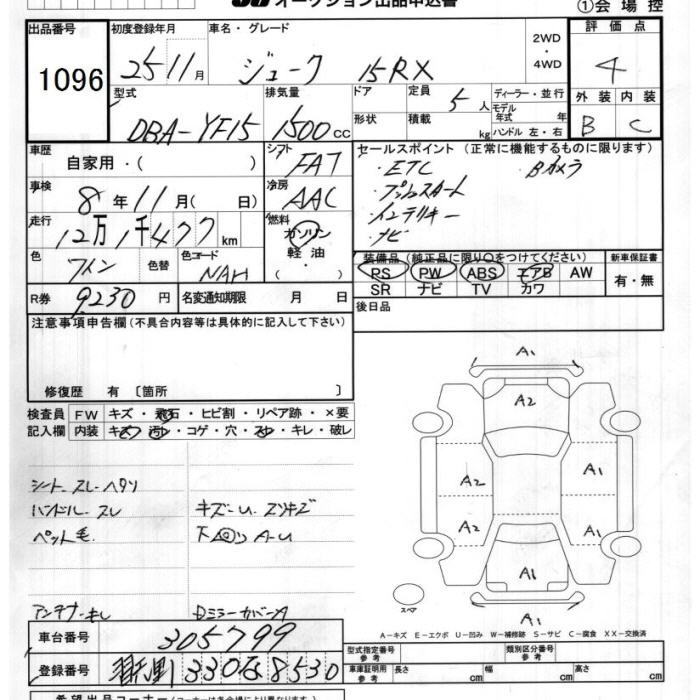 オークション出品申込書
①会場控
出品番号 1096
初度登録年月 25 11月
車名・グレード ジューク 15RX
2WD ・ 4WD
評価点 4
型式 DBA-YF15
排気量 1500cc
ドア 形状
定員 5人
積載 kg
ディーラー・並行
モデル年式 年
ハンドル 左・右
外装 B
内装 C
車歴 自家用・( )
シフト FAT
セールスポイント (正常に機能するものに限ります)
・ETC ・Bカメラ
・プッシュスタート
・インテリキー
・ナビ
車検 8年11月( 日)
冷房 AAC
走行 12万1千477km
燃料 ガソリン 軽油 ・( )
色 ワイン 色替
色コード NAH
装備品 (純正品に限り○をつけてください)
PS PW ABS エアB AW
SR ナビ TV カワ
新車保証書 有・無
R券 9230円
名変通知期限 月 日
後日品
注意事項申告欄(不具合内容等は具体的に記入して下さい)
修復歴 有 〔箇所 〕
検査員記入欄
FW キズ・飛石・ヒビ割・リペア跡・×要
内装 キズ・汚れ・コゲ・穴・スレ・キレ・破レ
シート スレ・ヘタリ
ハンドル スレ キズ-U スリキズ
ペット毛 下回り A-U
アンテナ キレ Dミラーカバー A
A1
A2
A2 A1
A2 A1
A1
A1
スペア
A-キズ E-エクボ U-凹み W-補修跡 S-サビ C-腐食 XX-交換済
車台番号 305799
登録番号 330 8530
型式指定番号 参考
類別区分番号 参考
車庫証明用 参考 長さ cm 幅 cm 高さ cm
希望出品コーナー